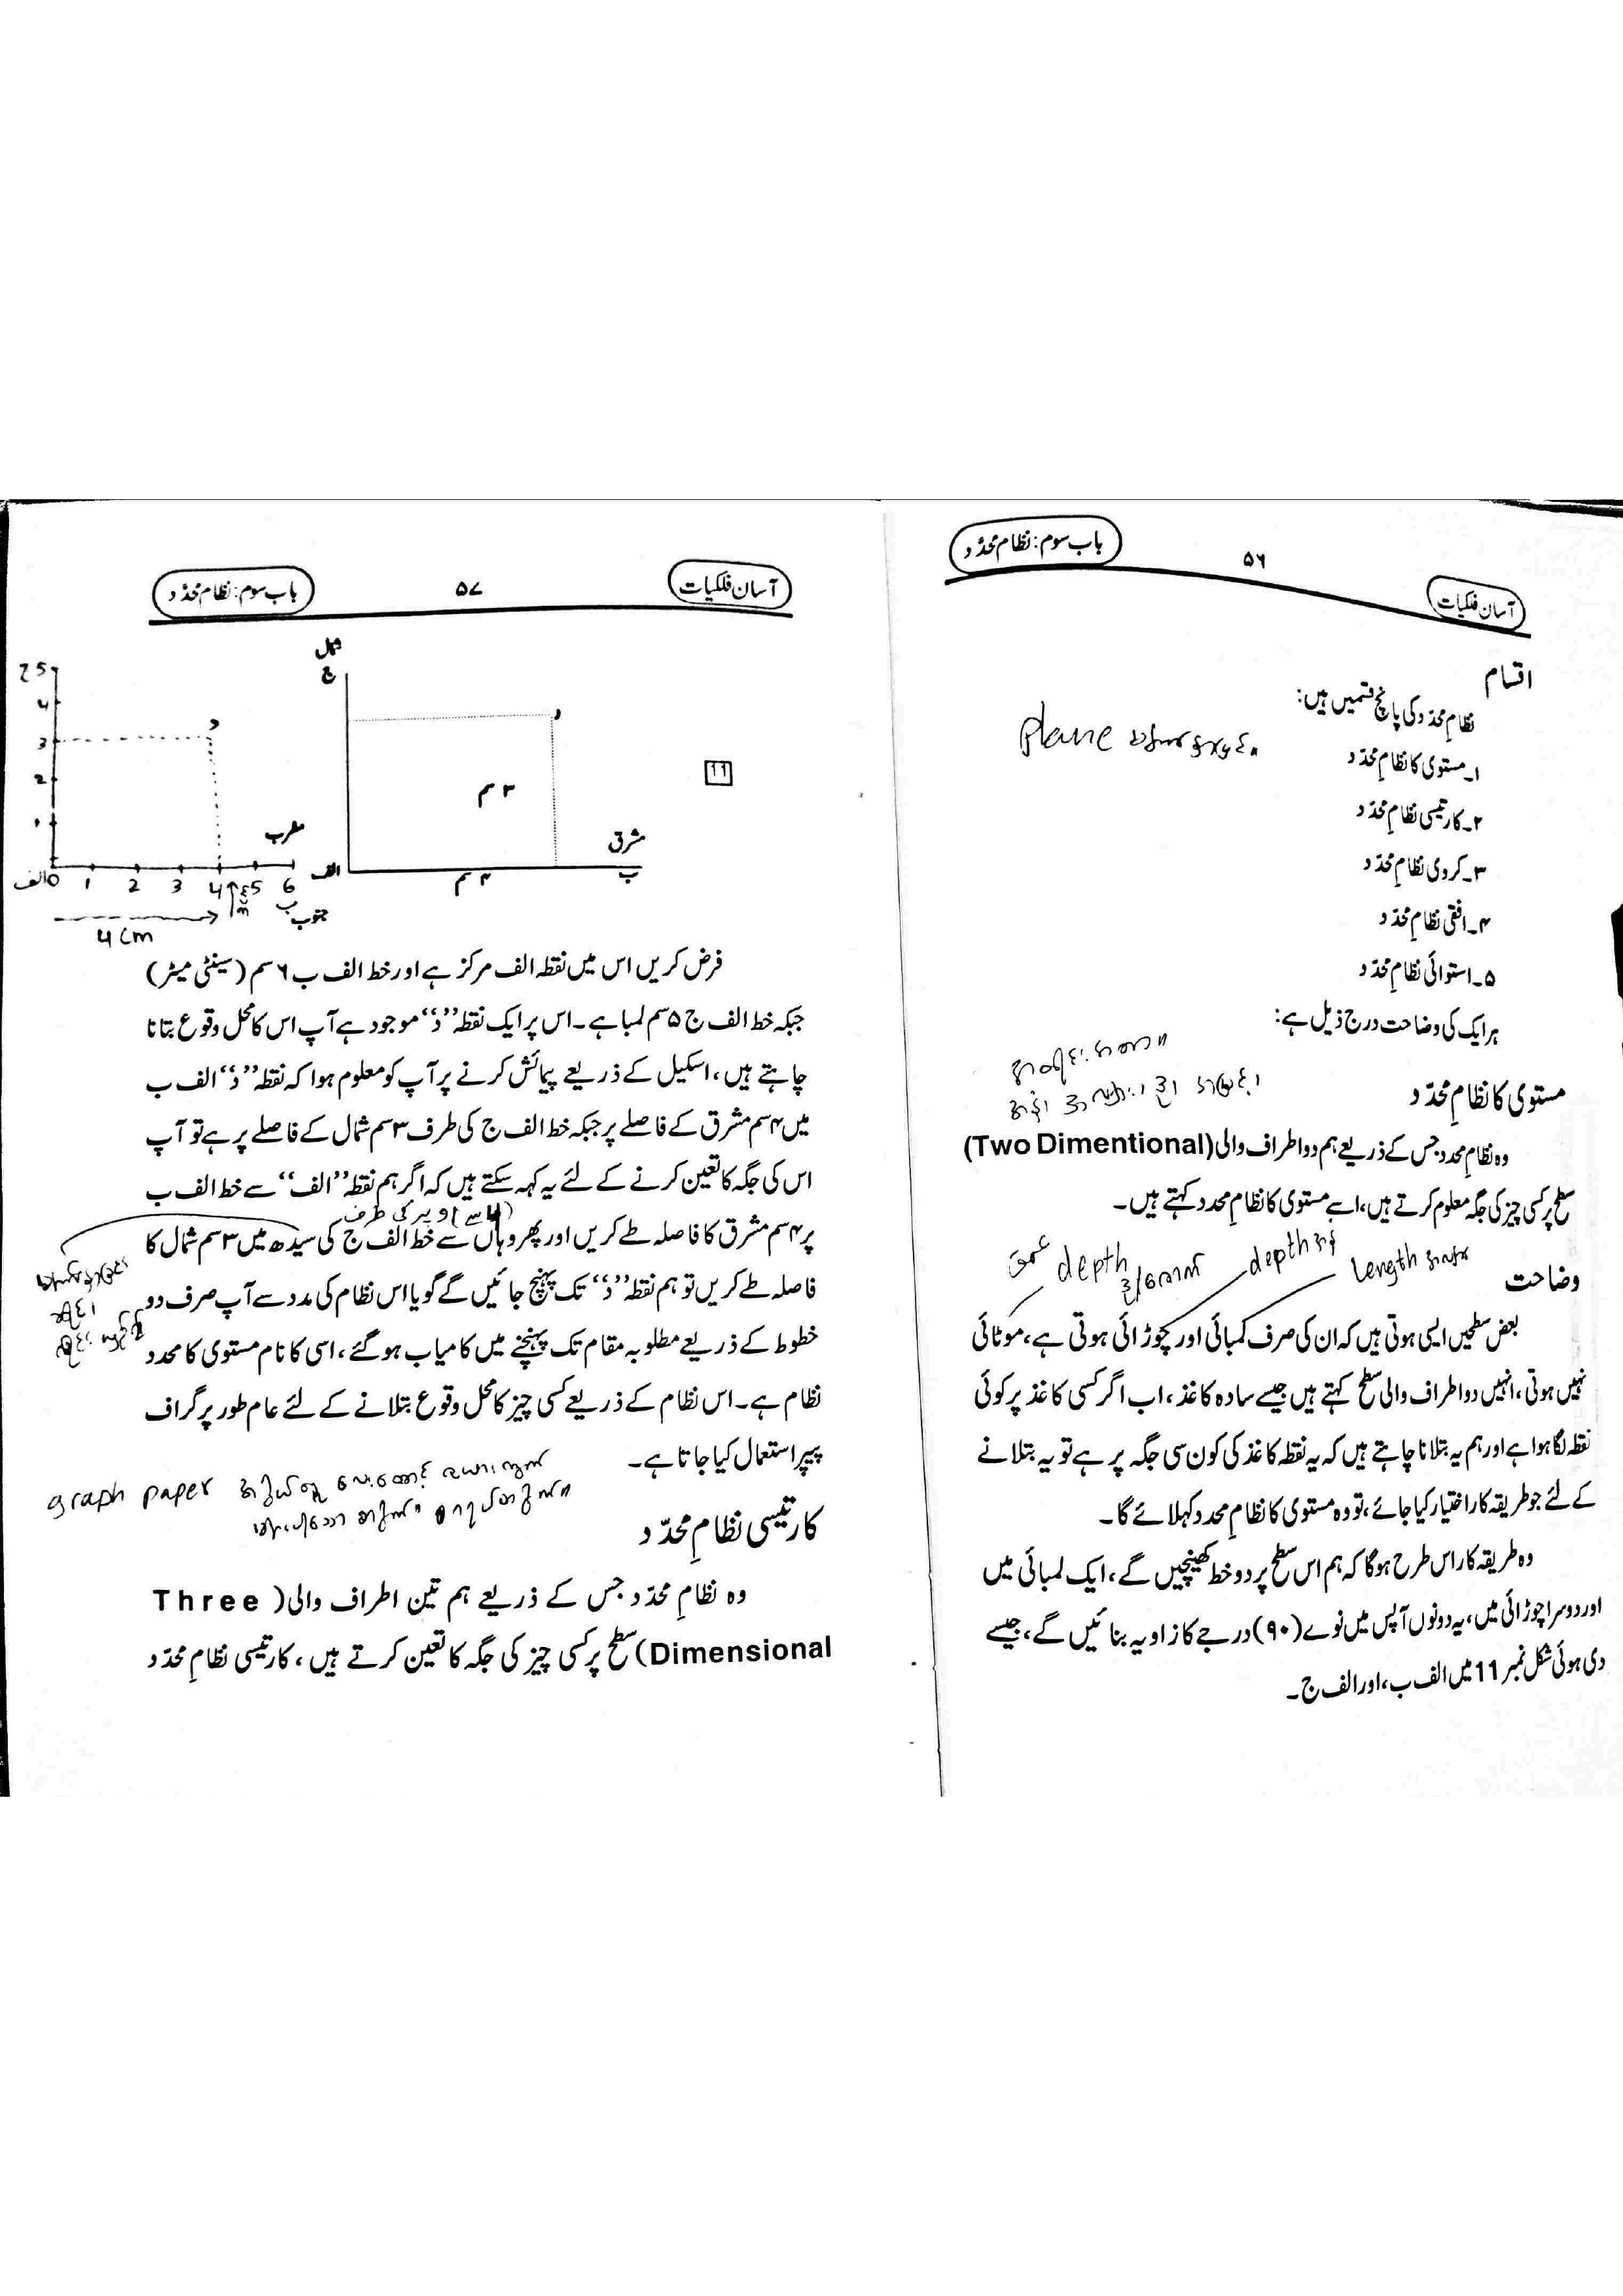 باب سوم: نظام محدّد
۵۶
آسان فلکیات
اقسام
نظامِ محدّد کی پانچ قسمیں ہیں:
plane
۱۔مستوی کا نظامِ محدّد
۲۔کارتیسی نظامِ محدّد
۳۔کروی نظامِ محدّد
۴۔افقی نظامِ محدّد
۵۔استوائی نظامِ محدّد
ہر ایک کی وضاحت درج ذیل ہے:
مستوی کا نظامِ محدّد
وہ نظامِ محدد جس کے ذریعے ہم دو اطراف والی (Two Dimentional)
سطح پر کسی چیز کی جگہ معلوم کرتے ہیں، اسے مستوی کا نظامِ محدد کہتے ہیں۔
depth
depth
length
وضاحت
بعض سطحیں ایسی ہوتی ہیں کہ ان کی صرف لمبائی اور چوڑائی ہوتی ہے، موٹائی
نہیں ہوتی، انہیں دو اطراف والی سطح کہتے ہیں جیسے سادہ کاغذ، اب اگر کسی کاغذ پر کوئی
نقطہ لگا ہوا ہے اور ہم یہ بتلانا چاہتے ہیں کہ یہ نقطہ کاغذ کی کون سی جگہ پر ہے تو یہ بتلانے
کے لئے جو طریقہ کار اختیار کیا جائے، تو وہ مستوی کا نظامِ محدد کہلائے گا۔
وہ طریقہ کار اس طرح ہوگا کہ ہم اس سطح پر دو خط کھینچیں گے، ایک لمبائی میں
اور دوسرا چوڑائی میں، یہ دونوں آپس میں نوے (۹۰) درجے کا زاویہ بنائیں گے، جیسے
دی ہوئی شکل نمبر 11 میں الف ب، اور الف ج۔
آسان فلکیات
۵۷
باب سوم: نظام محدّد
شمال
ج
د
۳ سم
11
مشرق
ب
۴ سم
الف
ج 5
4
3
2
1
د
مغرب
الف 0 1 2 3 4 5 6
ب
جنوب
4 cm
فرض کریں اس میں نقطہ الف مرکز ہے اور خط الف ب ۶ سم (سینٹی میٹر)
جبکہ خط الف ج ۵ سم لمبا ہے۔ اس پر ایک نقطہ ”د“ موجود ہے آپ اس کا محل وقوع بتانا
چاہتے ہیں، اسکیل کے ذریعے پیمائش کرنے پر آپ کو معلوم ہوا کہ نقطہ ”د“ الف ب
میں ۴ سم مشرق کے فاصلے پر جبکہ خط الف ج کی طرف ۳ سم شمال کے فاصلے پر ہے تو آپ
اس کی جگہ کا تعین کرنے کے لئے یہ کہہ سکتے ہیں کہ اگر ہم نقطہ ”الف“ سے خط الف ب
(4 سے) اوپر کی طرف
پر ۴ سم مشرق کا فاصلہ طے کریں اور پھر وہاں سے خط الف ج کی سیدھ میں ۳ سم شمال کا
فاصلہ طے کریں تو ہم نقطہ ”د“ تک پہنچ جائیں گے گویا اس نظام کی مدد سے آپ صرف دو
خطوط کے ذریعے مطلوبہ مقام تک پہنچنے میں کامیاب ہوگئے، اسی کا نام مستوی کا محدد
نظام ہے۔ اس نظام کے ذریعے کسی چیز کا محل وقوع بتلانے کے لئے عام طور پر گراف
پیپر استعمال کیا جاتا ہے۔
graph paper
کارتیسی نظامِ محدّد
وہ نظامِ محدّد جس کے ذریعے ہم تین اطراف والی (Three
Dimensional) سطح پر کسی چیز کی جگہ کا تعین کرتے ہیں، کارتیسی نظامِ محدّد